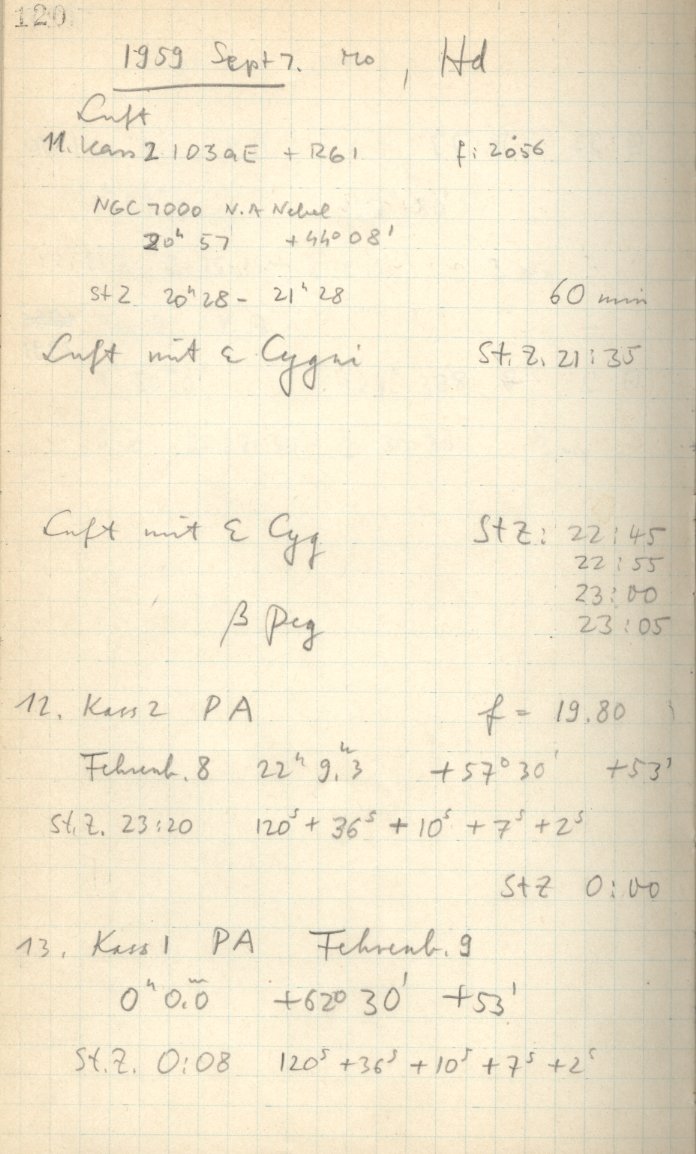 120
1959 Sept 7. Mo, Hd
Luft
11. Kass 2 103aE + RG1 f: 2056
NGC 7000 N.A Nebel
20ʰ 57 +44° 08'
StZ 20ʰ28 - 21ʰ 28 60 min
Luft mit ε Cygni St. Z. 21:35
Luft mit ε Cyg StZ: 22:45
22:55
23:00
β Peg 23:05
12. Kass 2 PA f = 19.80
Fehrenb. 8 22ʰ 9.ᵐ3 +57° 30' +53'
St. Z. 23:20 120ˢ + 36ˢ + 10ˢ + 7ˢ + 2ˢ
StZ 0:00
13. Kass 1 PA Fehrenb. 9
0ʰ 0.ᵐ0 +62° 30' +53'
St. Z. 0:08 120ˢ + 36ˢ + 10ˢ + 7ˢ + 2ˢ